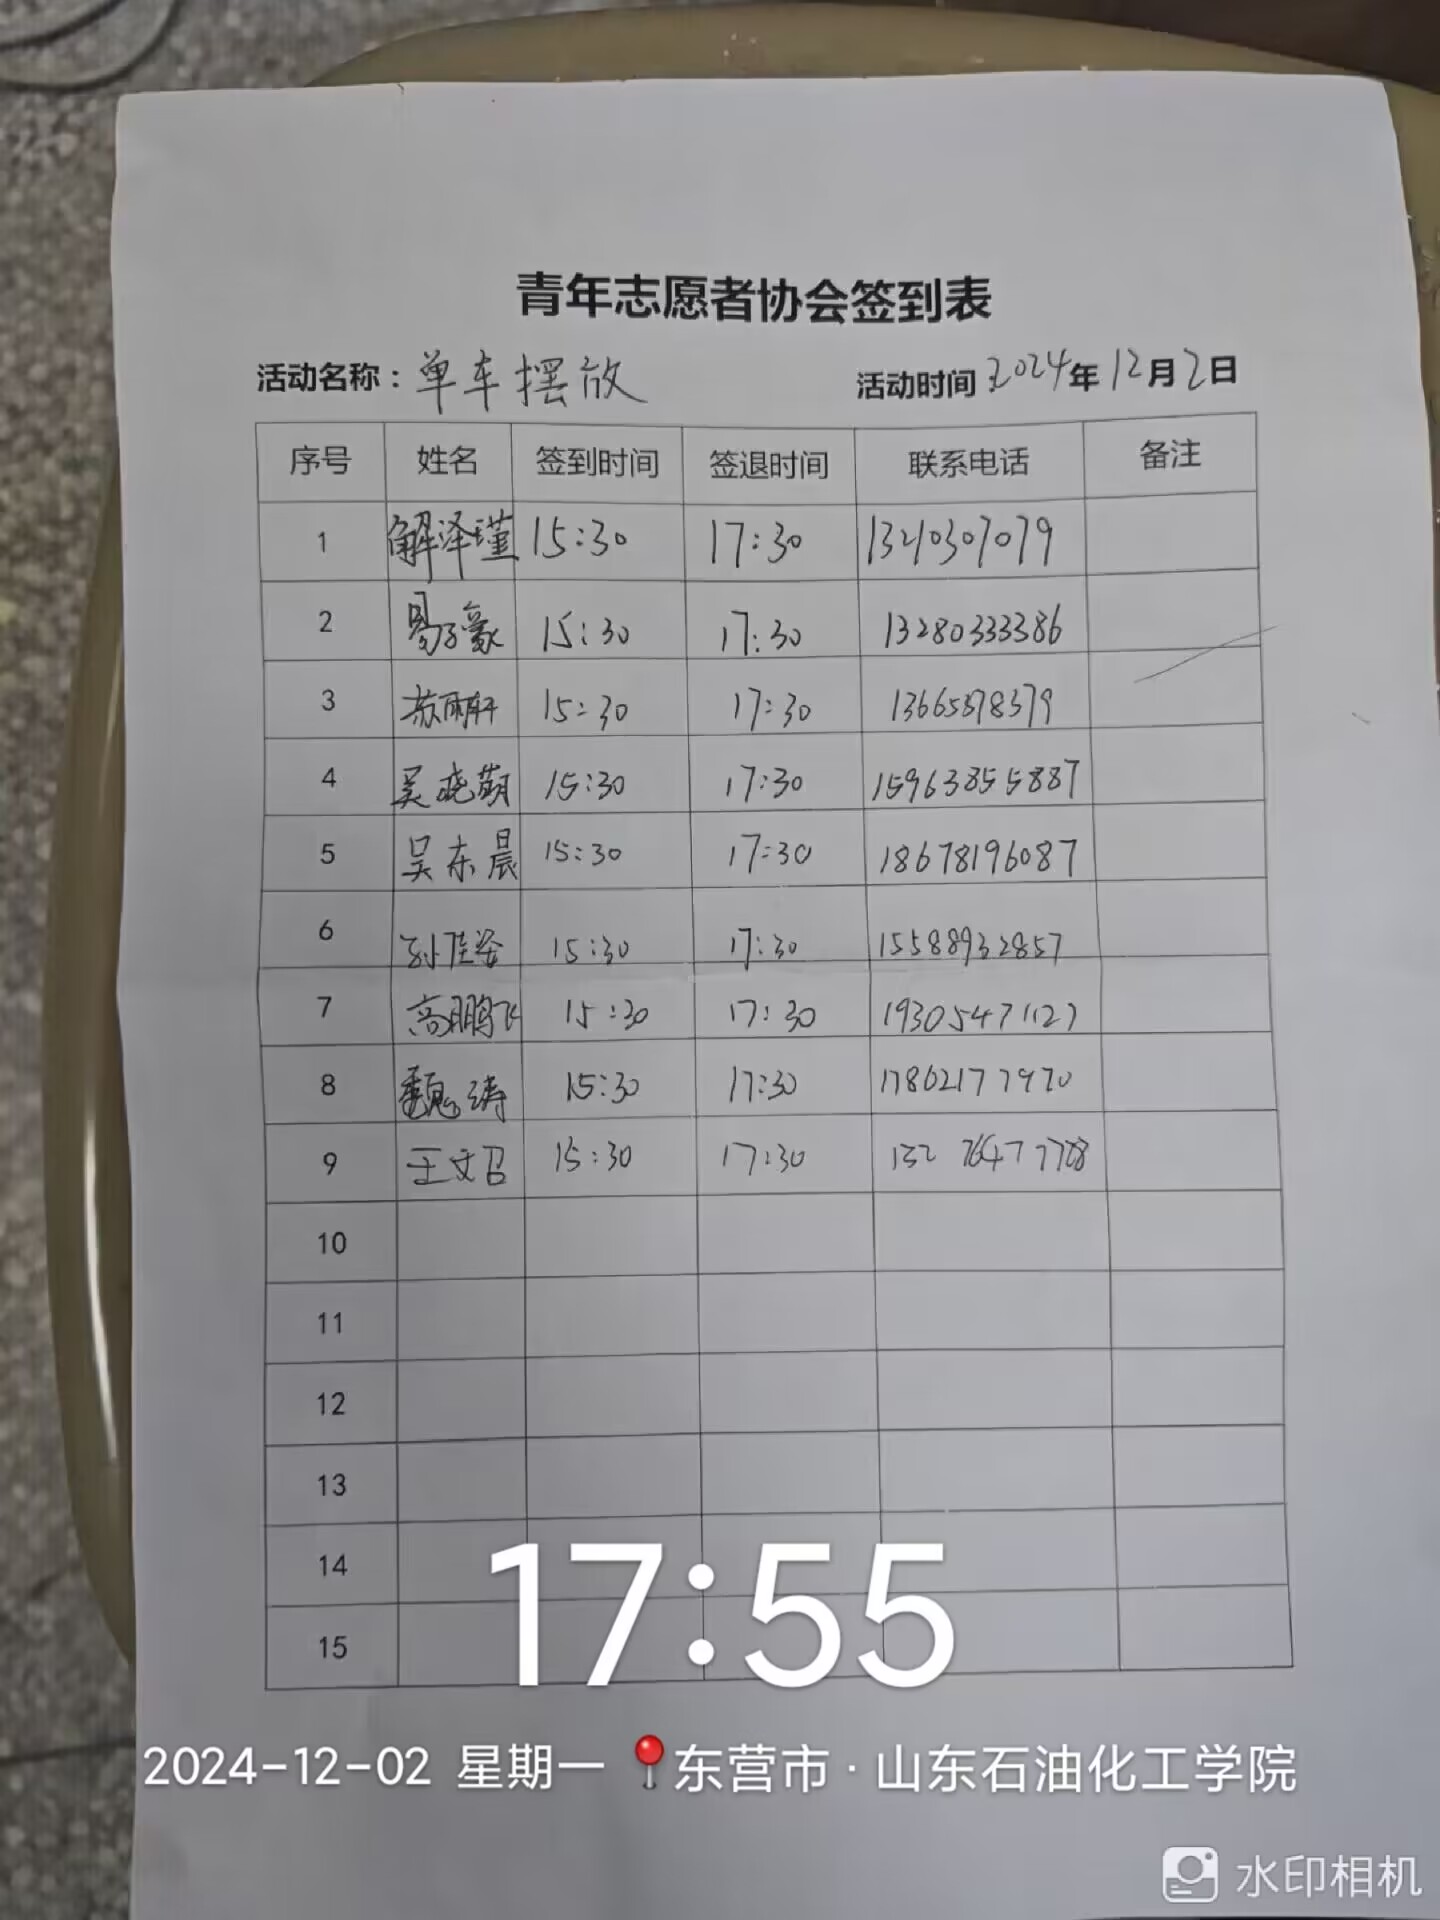 青年志愿者协会签到表
活动名称：单车摆放 活动时间：2024年12月2日
序号 姓名 签到时间 签退时间 联系电话 备注
1 解泽瑾 15:30 17:30
2 易子豪 15:30 17:30 13280333386
3 苏雨轩 15:30 17:30 13665878379
4 吴晓萌 15:30 17:30 15963855887
5 吴东晨 15:30 17:30 18678196087
6 孙佳姿 15:30 17:30 15588932857
7 高鹏飞 15:30 17:30 19305471127
8 魏涛 15:30 17:30 17862177970
9 王文召 15:30 17:30
10
11
12
13
14
15
17:55
2024-12-02 星期一 东营市·山东石油化工学院
水印相机